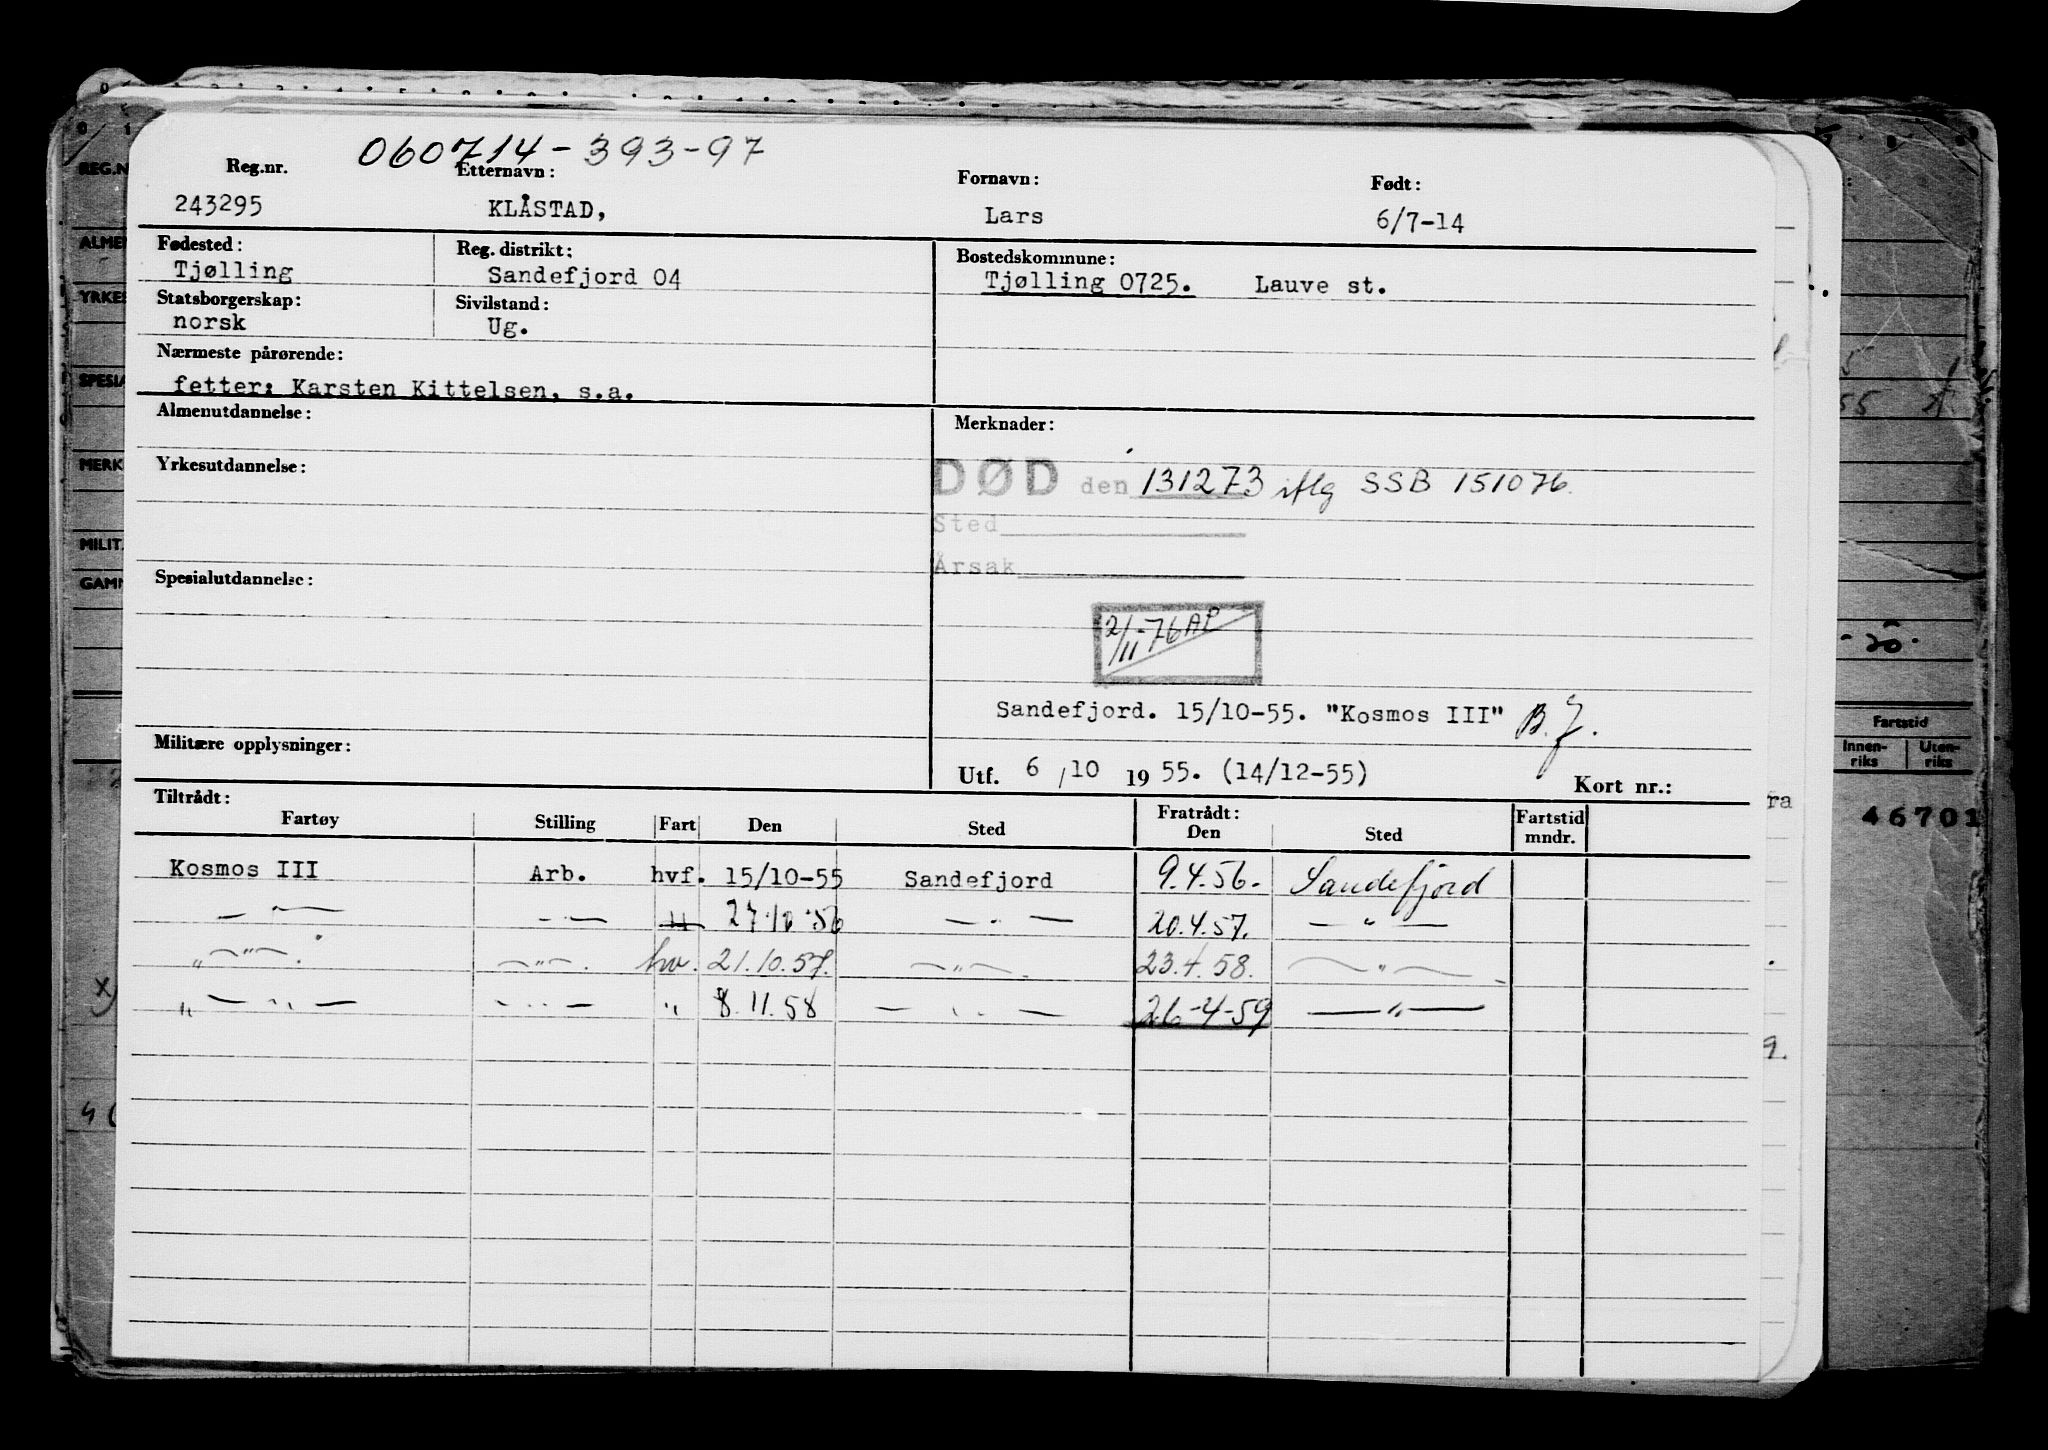 060714-393-97
Reg.nr. Etternavn: Fornavn: Født:
243295 KLÅSTAD, Lars 6/7-14
Fødested: Reg. distrikt: Bostedskommune:
Tjølling Sandefjord 04 Tjølling 0725. Lauve st.
Statsborgerskap: Sivilstand:
norsk Ug.
Nærmeste pårørende:
fetter: Karsten Kittelsen, s.a.
Almenutdannelse: Merknader:
Yrkesutdannelse:
DØD den 131273 iflg SSB 151076
Sted
Årsak
Spesialutdannelse:
2/11-76 AP
Sandefjord. 15/10-55. "Kosmos III" B.J.
Militære opplysninger:
Utf. 6/10 1955. (14/12-55) Kort nr.:
Tiltrådt: Fratrådt:
Fartøy Stilling Fart Den Sted Den Sted Fartstid mndr.
Kosmos III Arb. hvf. 15/10-55 Sandefjord 9.4.56. Sandefjord
— " — — " — " 27.10.56 — " — 20.4.57. — " —
— " — — " — hv. 21.10.57. — " — 23.4.58. — " —
" — " — — " — " 8.11.58 — " — 26-4-59 — " —
REG.N
ALME
YRKES
SPESIA
MERK
MILIT
GAMM
Fartstid
Innen-riks Uten-riks
46701